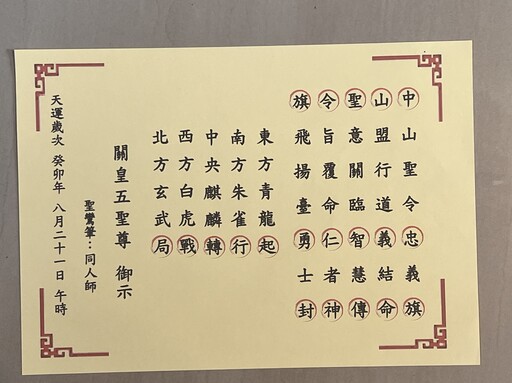 中山聖令忠義旗
山盟行道義結命
聖意關臨智慧傳
令旨覆命仁者神
旗飛揚臺勇士封
東方青龍起
南方朱雀行
中央麒麟轉
西方白虎戰
北方玄武局
關皇五聖尊 御示
聖鸞筆：同人師
天運歲次 癸卯年 八月二十一日 午時